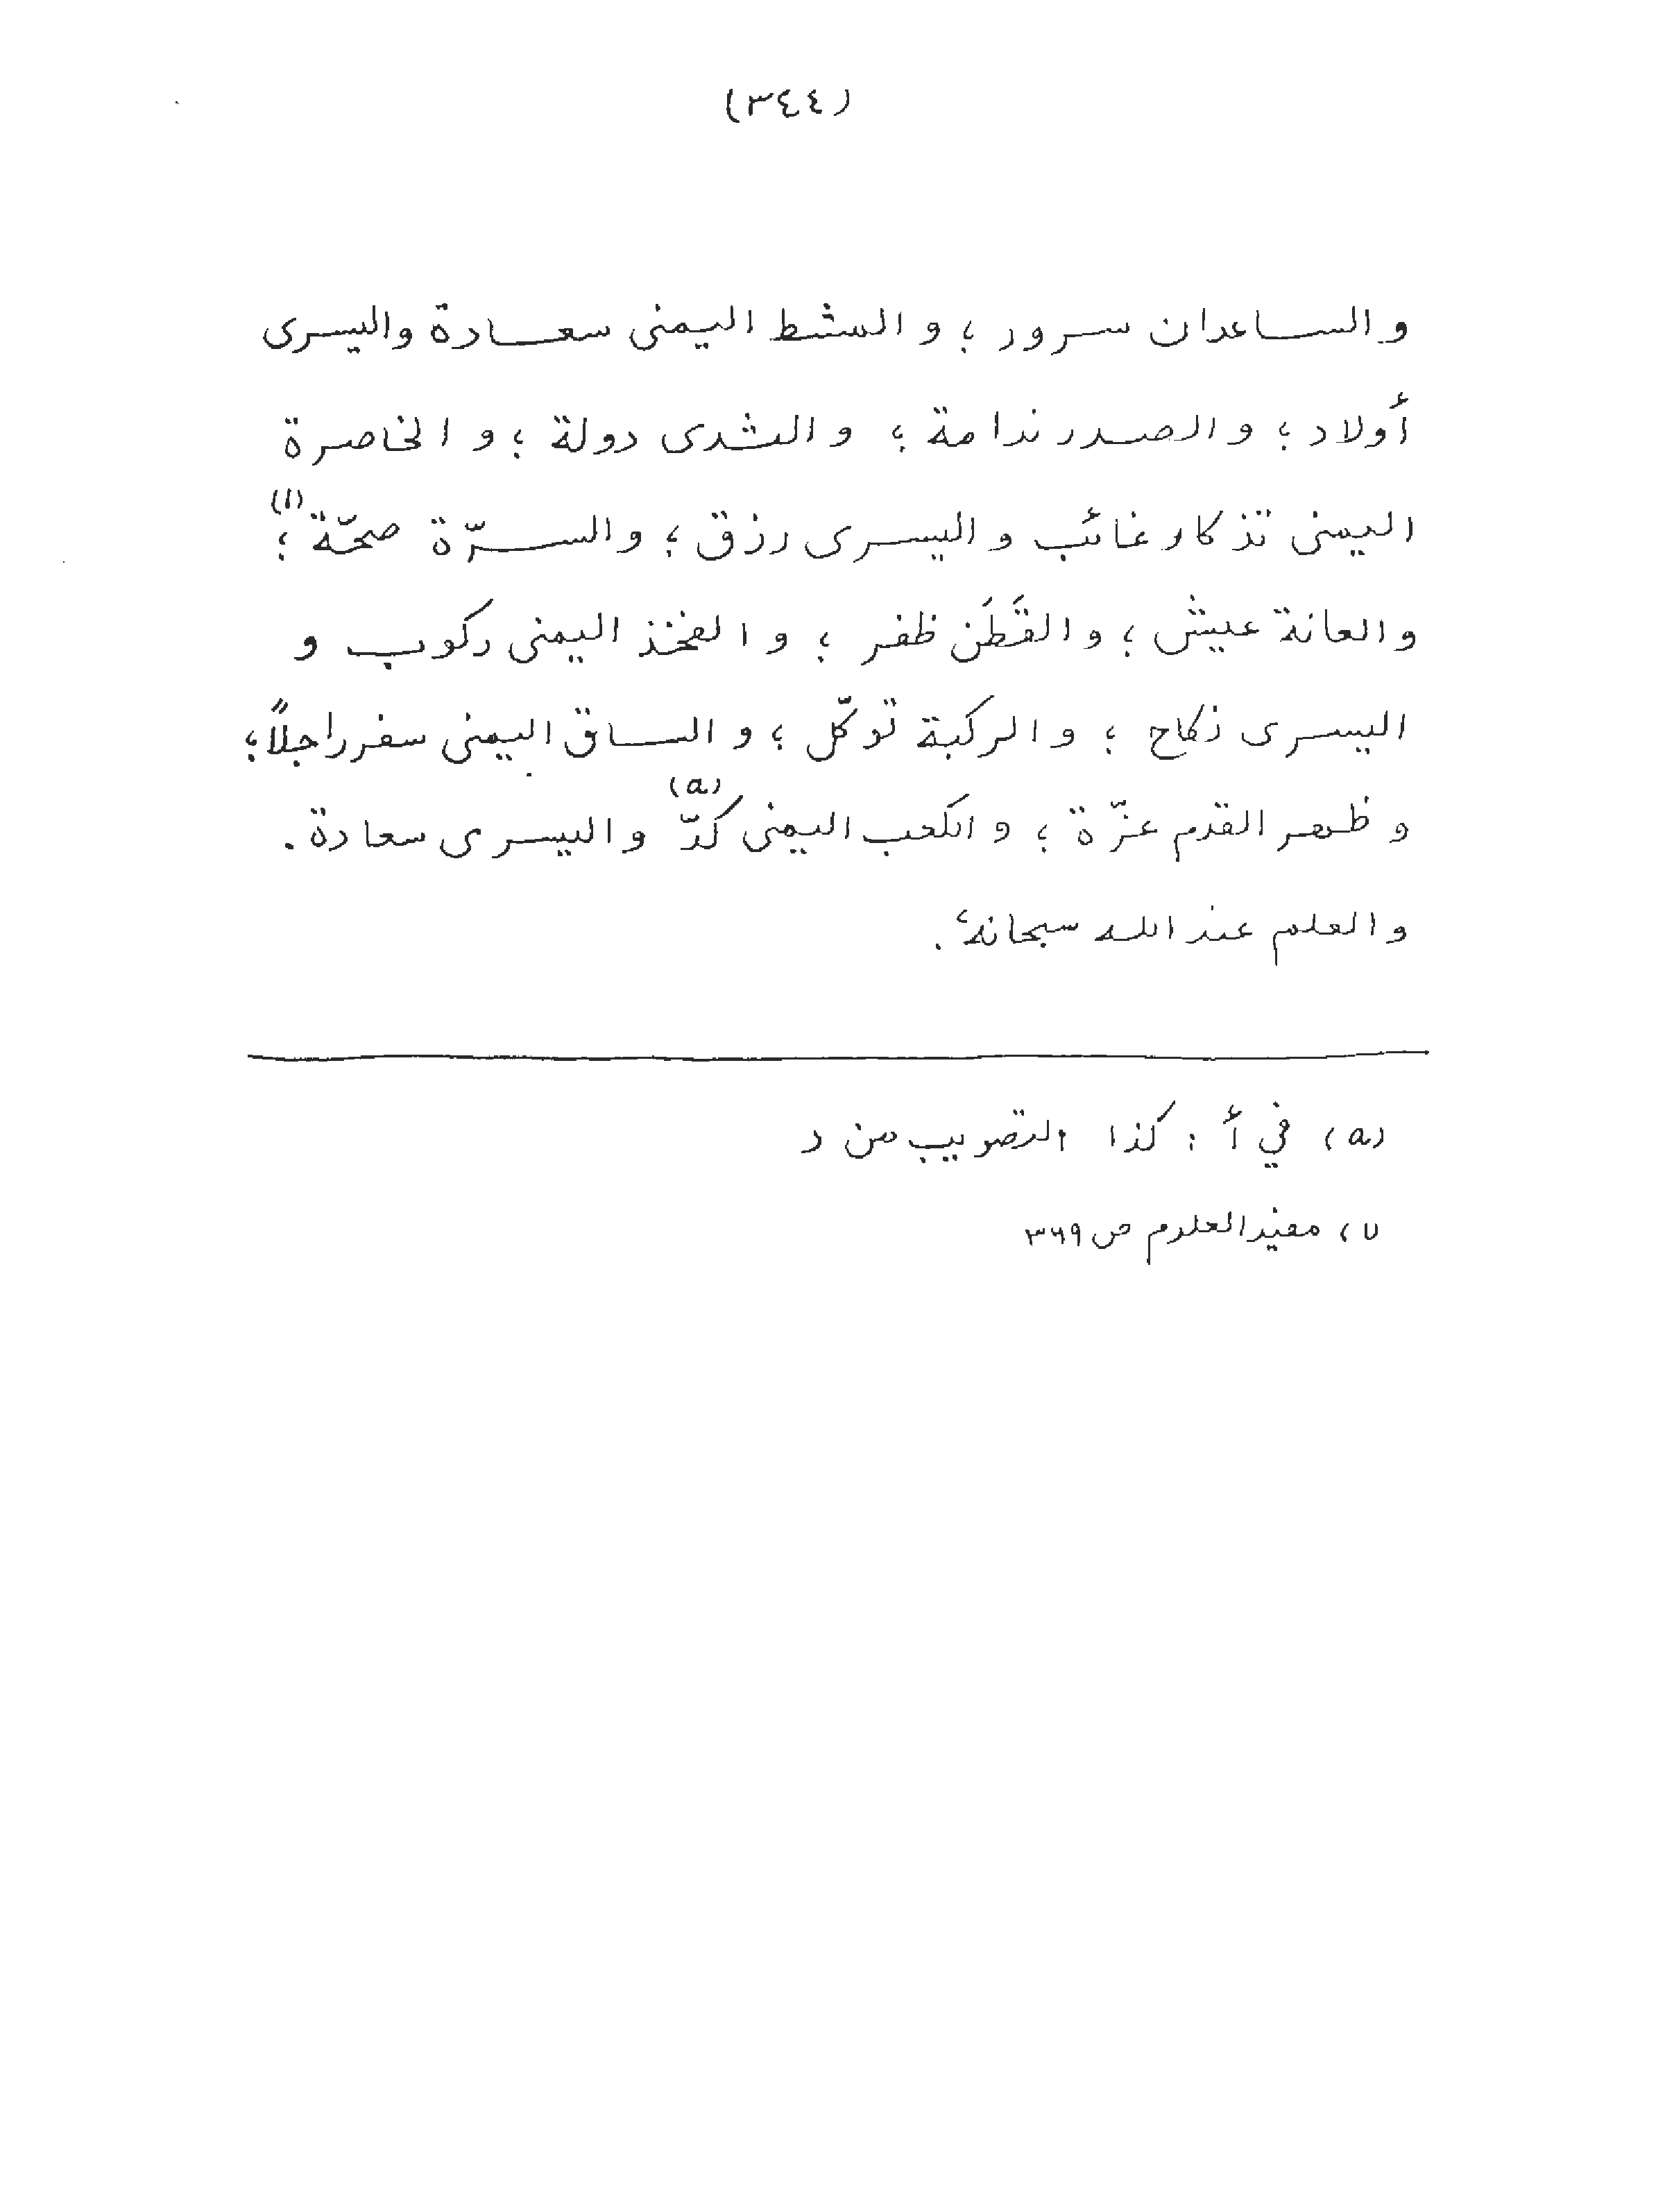 (٣٤٤)
والساعدان سرور؛ والمشط اليمنى سعادة واليسرى
أولاد؛ والصدر ندامة؛ والثدى دولة؛ والخاصرة
اليمنى تذكار غائب واليسرى رزق؛ والسرّة صحّة(١)؛
والعانة عيش؛ والقَطَن ظفر؛ والفخذ اليمنى ركوب و
اليسرى نكاح؛ والركبة توكّل؛ والساق اليمنى سفر راجلاً؛
وظهر القدم عزّة؛ والكعب اليمنى كدّ(a) واليسرى سعادة.
والعلم عند الله سبحانهُ.
(a) في أ: كذا والتصويب من د
١) مفيد العلوم ص ٣٦٩